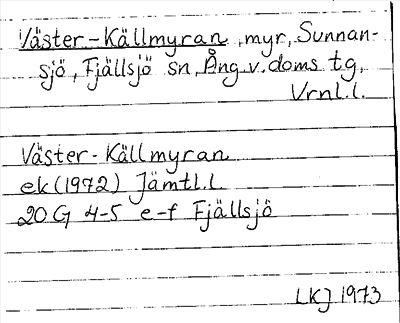 Väster-Källmyran, myr, Sunnan-
sjö, Fjällsjö sn, Ång.v.doms tg,
Vrnl.l.
Väster-Källmyran
ek (1972) Jämtl.l.
20 G 4-5 e-f Fjällsjö
LKJ 1973